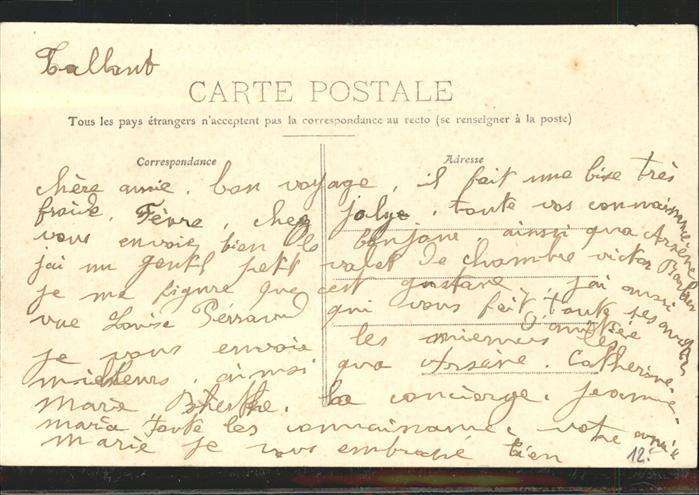 Tallant
CARTE POSTALE
Tous les pays étrangers n'acceptent pas la correspondance au recto (se renseigner à la poste)
Correspondance
Adresse
chère amie, bon voyage, il fait une bise très
froide, Fèvre, chez jolye, toute vos connaissance
vous envoie bien le bonjour, ainsi qua Arsène
j'ai un gentil petit valet de chambre victor
je me figure que c'est gustave, j'ai aussi
vue Louise Perraud qui vous fait toute ses amitiée
je vous envoie les miennes les
meilheurs, ainsi qua Arsène, Catherine,
marie Bherthe, la concierge, jeanne,
maria toute les connaissance, votre amie
marie je vous embrasse bien
12.